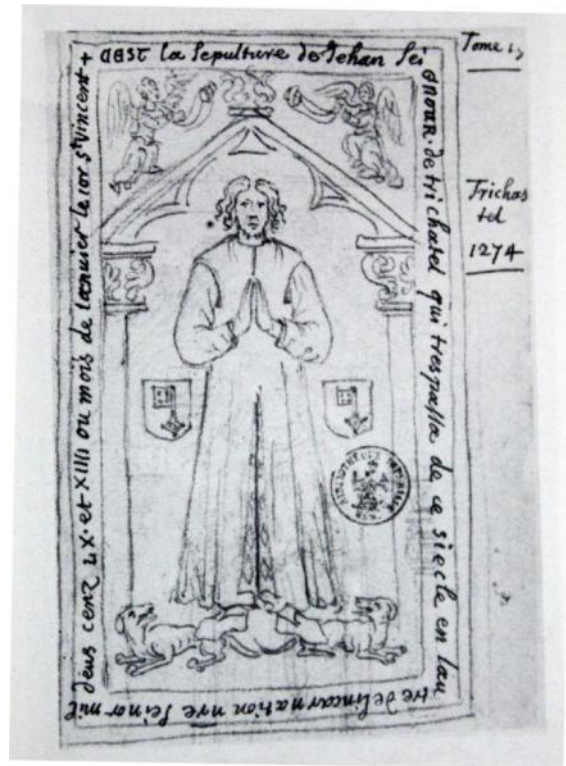 + CEST la Sepulture de Jehan Sei
GNOUR. de trichatel qui trespassa de ce siecle en lan
tre delincarnation nre Seinor mil
deus cenz LX. et XIIII ou mois de ianuier le ior st vincent
Trichas
tel
1274
BIBLIOTHEQUE IMPERIALE